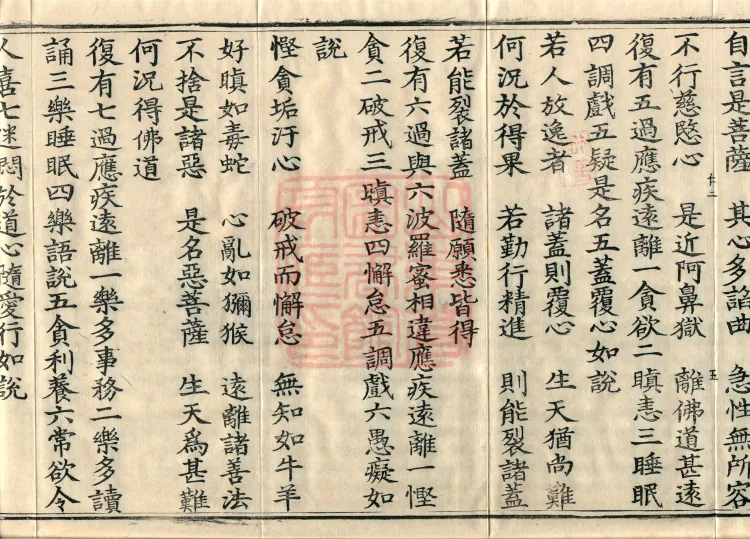 自言是菩薩　其心多諂曲　急性無所容
不行慈愍心　是近阿鼻獄　離佛道甚遠
復有五過應疾遠離一貪欲二瞋恚三睡眠
四調戲五疑是名五蓋覆心如說
若人放逸者　諸蓋則覆心　生天猶尚難
何況於得果　若勤行精進　則能裂諸蓋
若能裂諸蓋　隨願悉皆得
復有六過與六波羅蜜相違應疾遠離一慳
貪二破戒三瞋恚四懈怠五調戲六愚癡如
說
慳貪垢汙心　破戒而懈怠　無知如牛羊
好瞋如毒蛇　心亂如獼猴　遠離諸善法
不捨是諸惡　是名惡菩薩　生天爲甚難
何況得佛道
復有七過應疾遠離一樂多事務二樂多讀
誦三樂睡眠四樂語說五貪利養六常欲令
人喜七迷悶於道心隨愛行如說